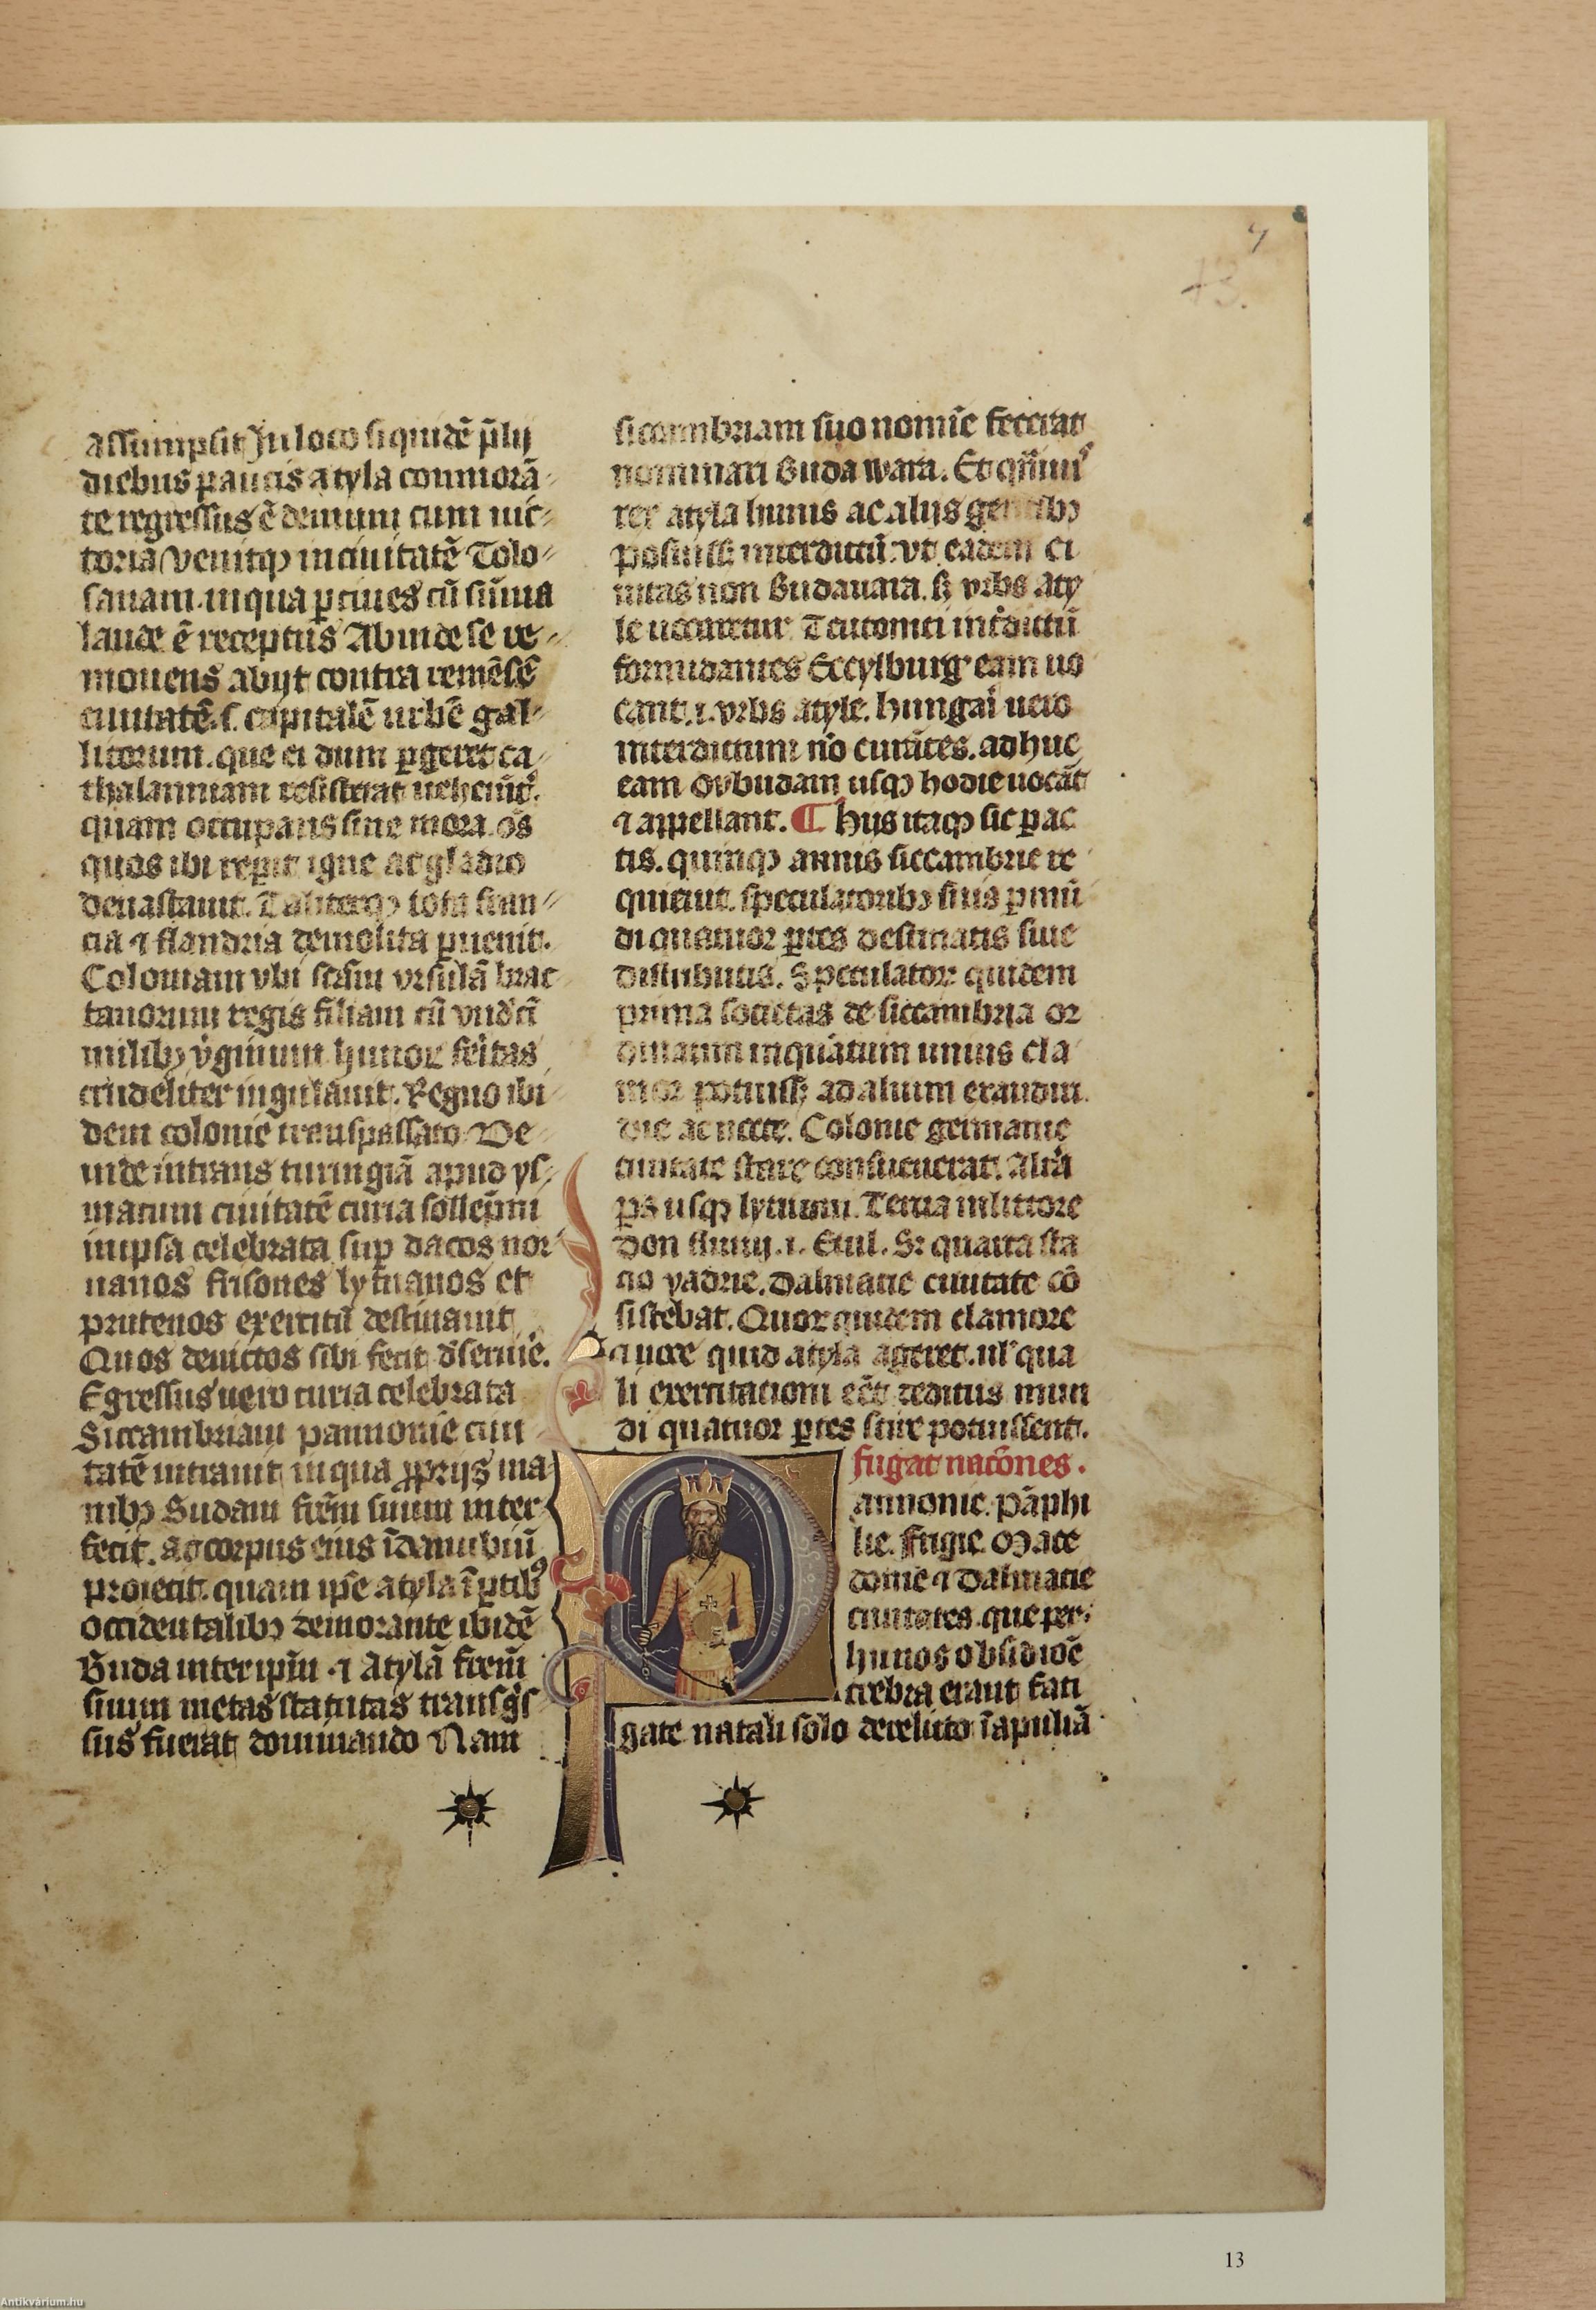 7
13.
assūmpsit In loco siquidē p̄lij
diebus paucis atyla conmorā
te regressus ē demum cum uic
toria Venitqȝ in ciuitatē Tolo
sanam. in qua ꝑ ciues cū sūma
laude ē receptus Ab inde se re
mouens abijt contra remēsē
ciuitatē. s. capitalē urbē gal
licorum. que ei dum ꝑgeret ca
thalanniam resisterat
quam occupans sine mora. oēs
quos ibi reꝑit igne ac gladio
deuastauit. Taliterqȝ tota fran
cia ⁊ flandria demolita ꝑuenit.
Coloniam vbi scām vrsulā brac
tanorum regis filiam cū vndēcī
milibȝ v̓ginum hunoꝝ feritas
crudeliter iugulauit. Regno ibi
dem colonie transpassato De
inde intrans turingiā apud ys
nacum ciuitatē curia sollēpni
in ipsa celebrata suꝑ dacos nor
uanos frisones lytuanos et
prutenos exercitū destinauit
Quos deuictos sibi fecit d̓seruīe.
Egressus uero curia celebrata
Siccambriam pannonie ciui
tatē intrauit in qua ꝓprijs ma
nibȝ Budam fr̄em suum inter
fecit. ac corpus eius ī danubiū
proiecit. quam ip̄e atyla ī ꝑtibꝰ
occidentalibȝ demorante ibidē
Buda inter ip̄m ⁊ Atylā fr̄em
suum metas statutas transg̓s
sus fuerat dominando Nam
siccambriam suo nomīe fecerat
nominari Buda wara. Et
rex atyla hunis ac alijs gentibȝ
posuisset interdictū: vt eadem ci
uitas non Budauara. sȝ vrbs aty
le uocaretur Teutonici int̓dictū
formidantes Eccylburg eam uo
cant. i. vrbs atyle. hungari uero
interdictum nō curātes. adhuc
eam oybudam usqȝ hodie uocāt
⁊ appellant. ¶ Hijs itaqȝ sic ꝑac
tis. quinqȝ annis siccambrie re
quieuit. speculatoribȝ suis ꝑ mū
di quatuor ꝑtes destinatis siue
distributis. Speculatoꝝ quidem
prima societas de siccambria or
dinatim inquātum unius cla
mor potuisset ad alium exaudiri.
die ac nocte. Colonie germanie
ciuitate stare consueuerat. Alt̓a
ꝑs usqȝ lytuam. Tertia in littore
don fluuij. i. Etul. Sꝫ quarta sta
tio yadrie. dalmatie ciuitate cō
sistebat. Quoꝝ quidem clamore
ac uoce quid atyla ageret. ul̓ qua
li exercitationi eēt deditus mun
di quatuor ꝑtes scire potuissent.
fugat natōnes.
Pannonie. pāphi
lie. frigie. mace
donie ⁊ dalmatie
ciuitates. que per
hunos obsidiōe
crebra erant fati
gate natali solo derelicto ī apuliā
13
Antikvárium.hu